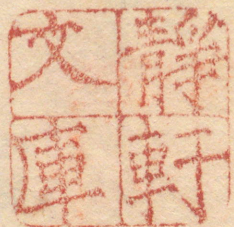 靜軒
文庫